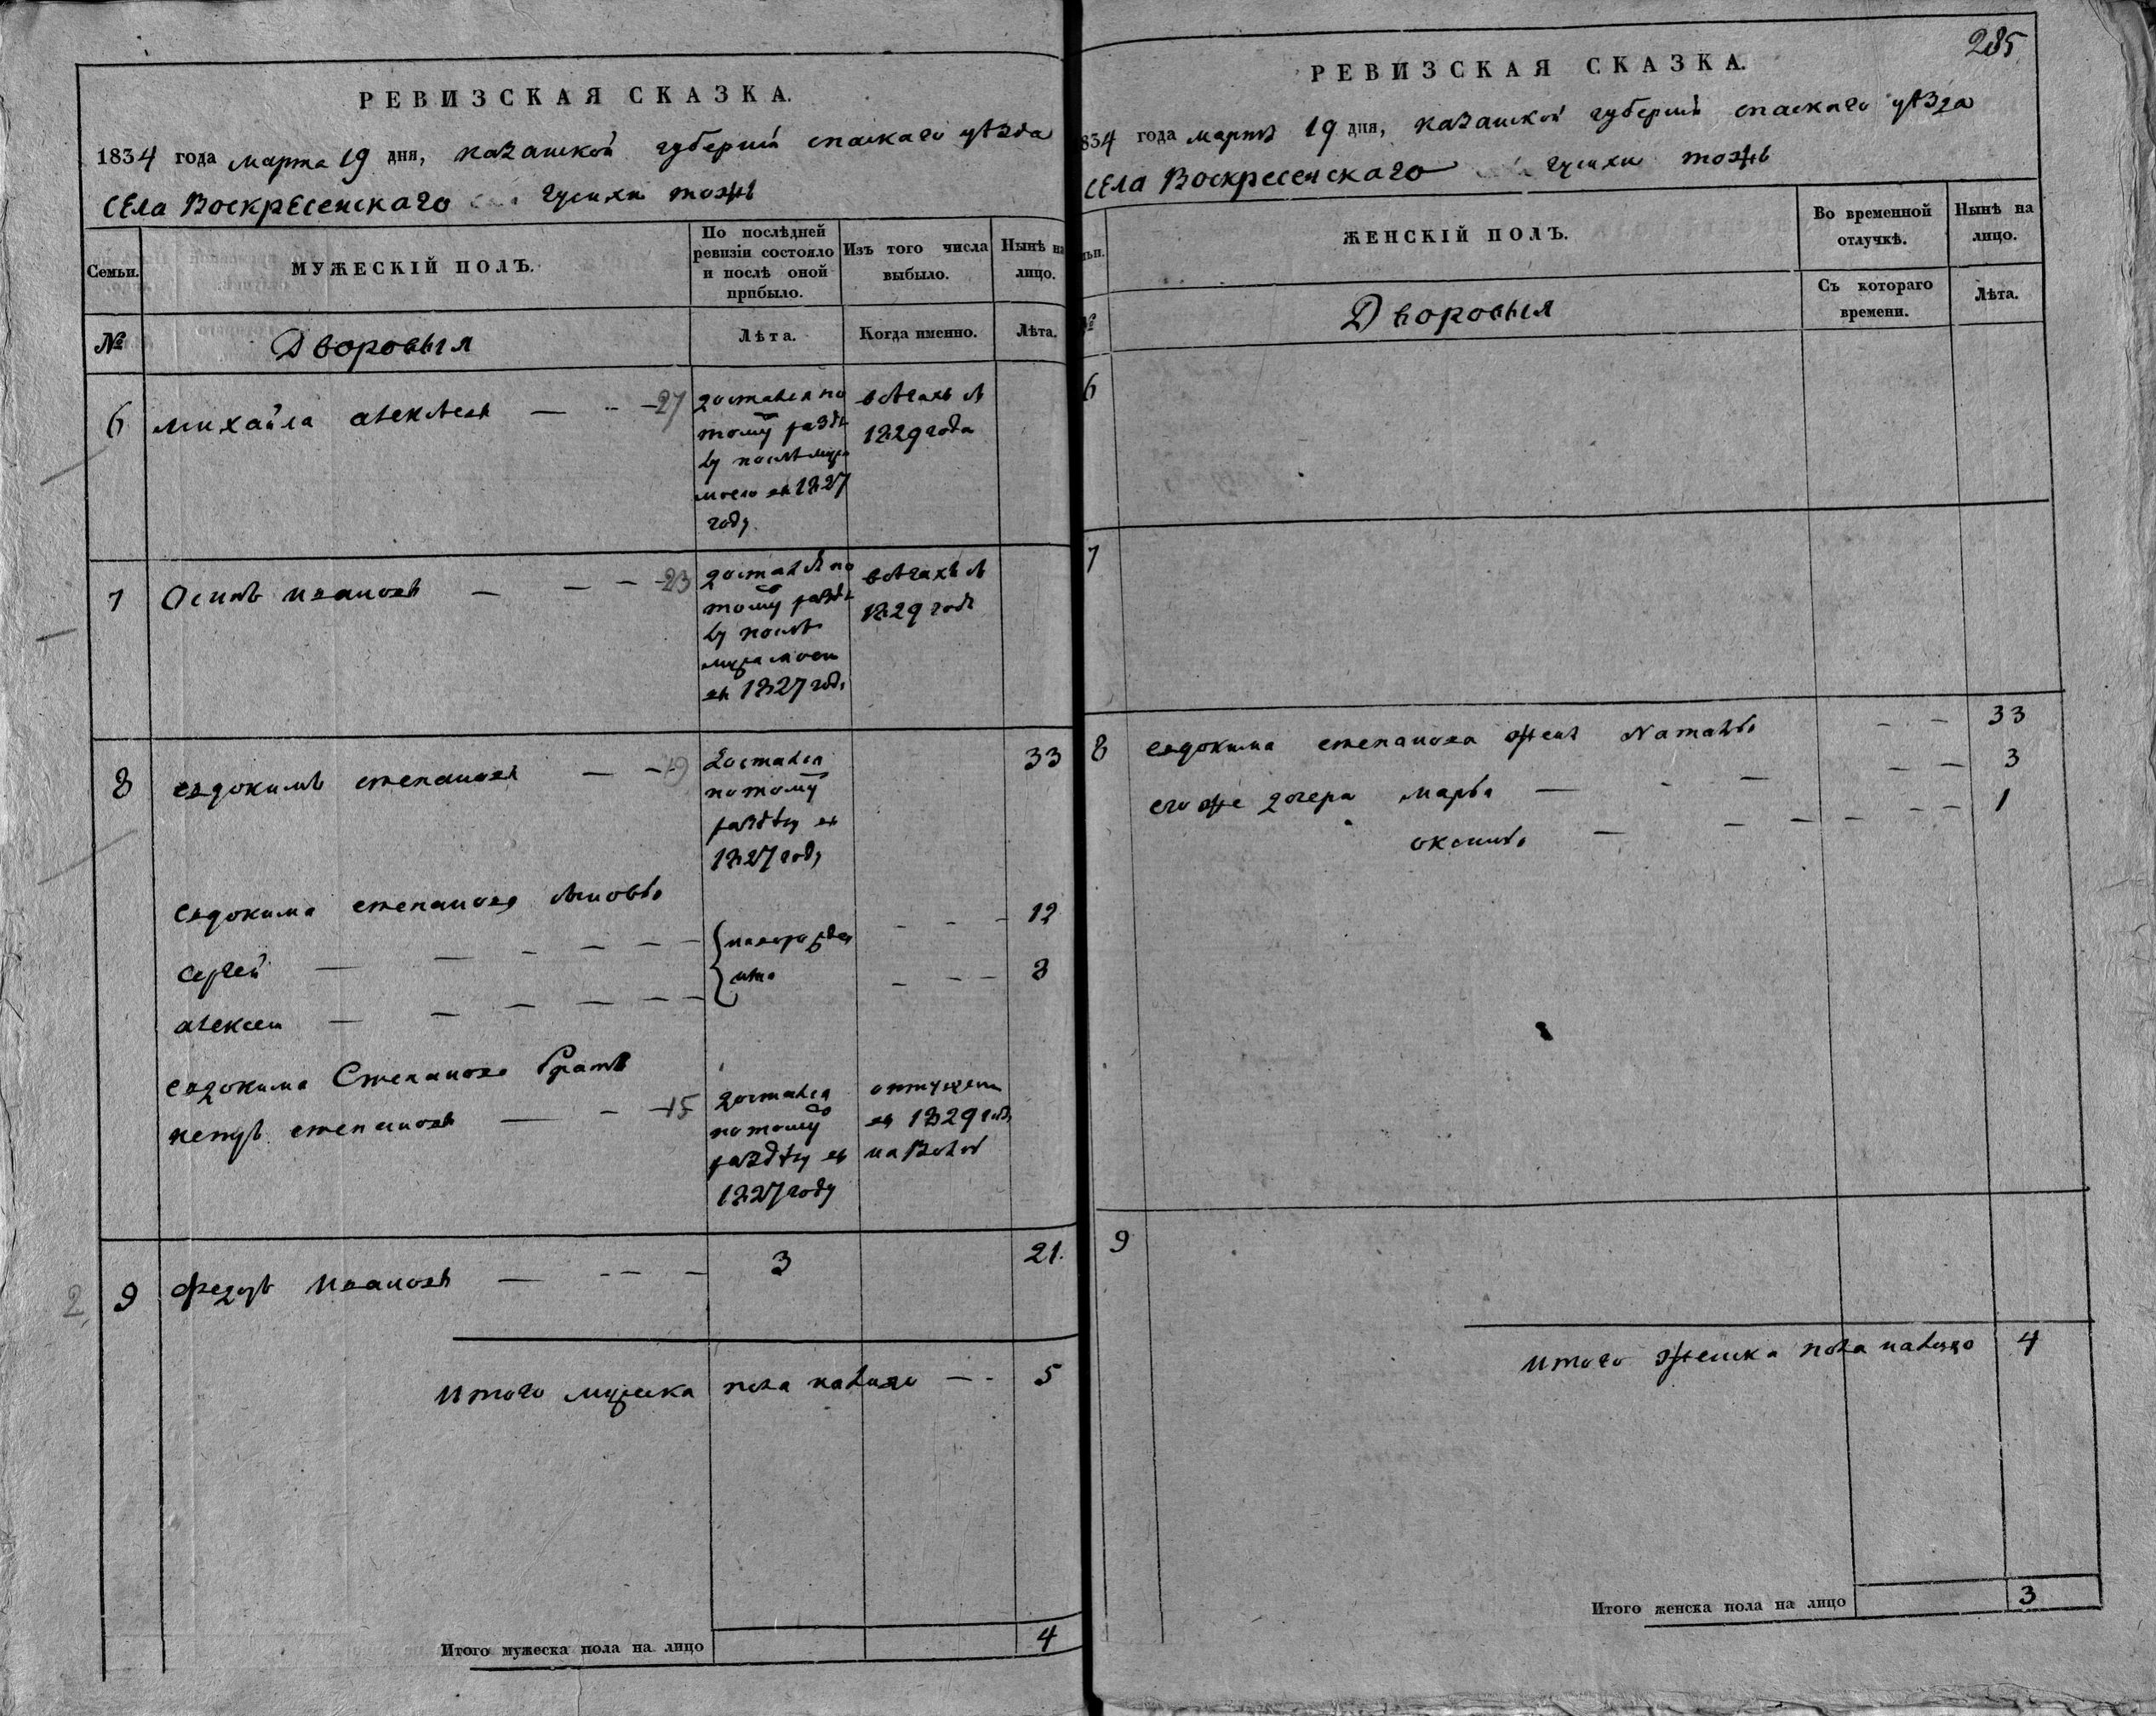 РЕВИЗСКАЯ СКАЗКА.
1834 года марта 19 дня, казанской губерніи спаскаго уѣзда
села Воскресенскаго гусихи тожъ
Семьи.
МУЖЕСКІЙ ПОЛЪ.
По послѣдней ревизіи состояло и послѣ оной прибыло.
Изъ того числа выбыло.
Нынѣ на лицо.
№
Дворовыя
Лѣта.
Когда именно.
Лѣта.
6 михайла алексѣевъ — - - 27
достался по
тому раздѣ
лу послѣ мужа
моего въ 1827
году
въ бѣгахъ съ
1829 года
7 Осипъ ивановъ — — - 23
достался по
тому раздѣ
лу послѣ
мужа моего
въ 1827 году
въ бѣгахъ съ
1829 года
8 евдокимъ степановъ — - 19
достался
потому
раздѣлу въ
1827 году
33
евдокима степанова сыновья
сергей — — - — — —
новорожден
ные
- - - 12
алексеи — — — — — —
- - - 8
евдокима Степанова братъ
петръ степановъ — - 15
достался
потому
раздѣлу въ
1827 году
отпущенъ
въ 1829 году
на волю
9 федоръ Ивановъ — - - —
3
21.
Итого мужска пола налицо — - 5
Итого мужеска пола на лицо 4
285
РЕВИЗСКАЯ СКАЗКА.
834 года марта 19 дня, казанской губерніи спаскаго уѣзда
села Воскресенскаго гусихи тожъ
ьи.
ЖЕНСКІЙ ПОЛЪ.
Во временной отлучкѣ.
Нынѣ на лицо.
№
Дворовыя
Съ котораго времени.
Лѣта.
6
7
8 евдокима степанова жена Наталья - - 33
его же дочери марья — - — - — 3
оксинья — — — — - - 1
9
Итого женска пола налицо 4
Итого женска пола на лицо 3